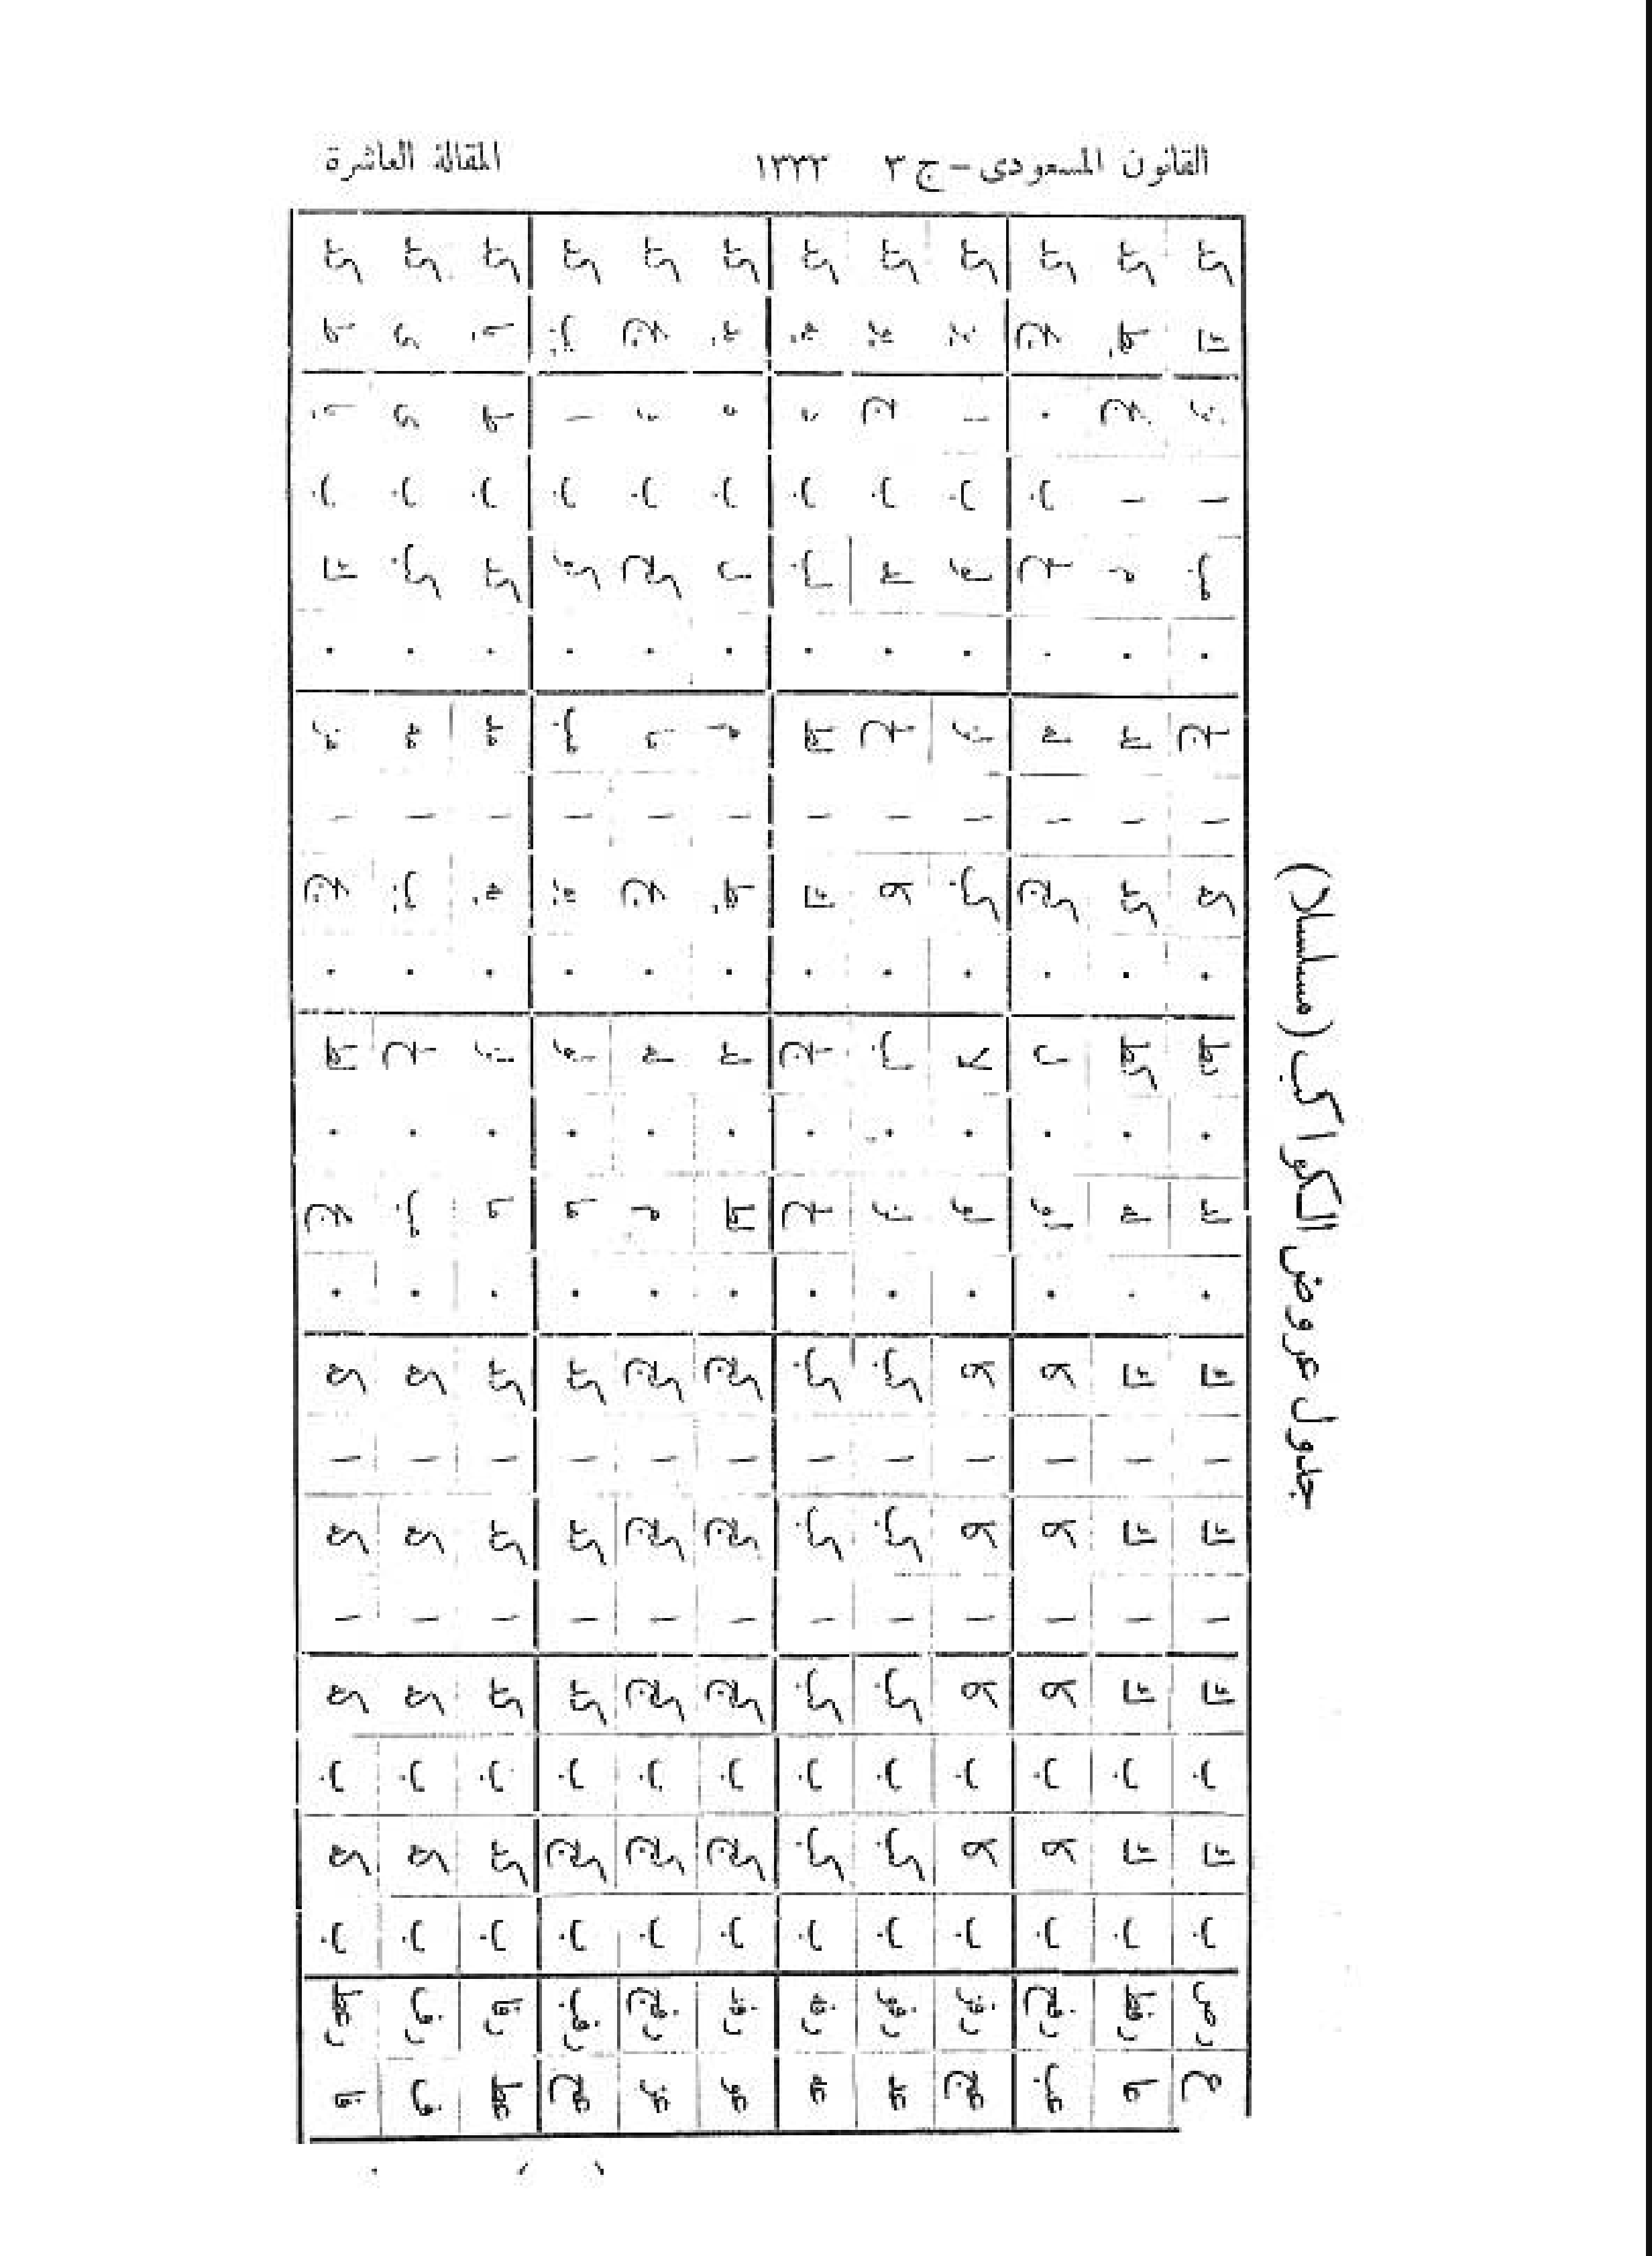 القانون المسعودى - ج ٣ ١٣٣٣ المقالة العاشرة
جدول عروض الكواكب (مسلسلا)
ع رص ب ك ب ك ا ك ا ك ٠ لد ٠ كط ٠ كه ا لج ٠ مب ا نز ك كد
عا رفط ب ك ب ك ا ك ا ك ٠ له ٠ كط ٠ كد ا لد ٠ م ا نح يط كد
عب رفح ب كا ب كا ا كا ا كا ٠ لو ٠ ل ٠ كج ا له ٠ لح ب ٠ يح كد
عج رفز ب كا ب كا ا كا ا كا ٠ لو ٠ لا ٠ كب ا لز ٠ لو ب ا يز كد
عد رفو ب كب ب كب ا كب ا كب ٠ لز ٠ لب ٠ كا ا لح ٠ لد ب ج يو كد
عه رفه ب كب ب كب ا كب ا كب ٠ لح ٠ لج ٠ ك ا لط ٠ لب ب د يه كد
عو رفد ب كج ب كج ا كج ا كج ٠ لط ٠ لد ٠ يط ا م ٠ ل ب ه يد كد
عز رفج ب كج ب كج ا كج ا كج ٠ م ٠ له ٠ يح ا ما ٠ كح ب و يج كد
عح رفب ب كج ب كد ا كد ا كد ٠ ما ٠ لو ٠ يو ا مب ٠ كو ب ا يب كد
عط رفا ب كد ب كد ا كد ا كد ٠ ما ٠ لز ٠ يه ا مد ٠ كد ب ط يا كد
ف رف ب كه ب كه ا كه ا كه ٠ مب ٠ لح ٠ يب ا مه ٠ كب ب ى ى كد
فا رعط ب كه ب كه ا كه ا كه ٠ مج ٠ لط ٠ يج ا مو ٠ ك ب يا ط كد